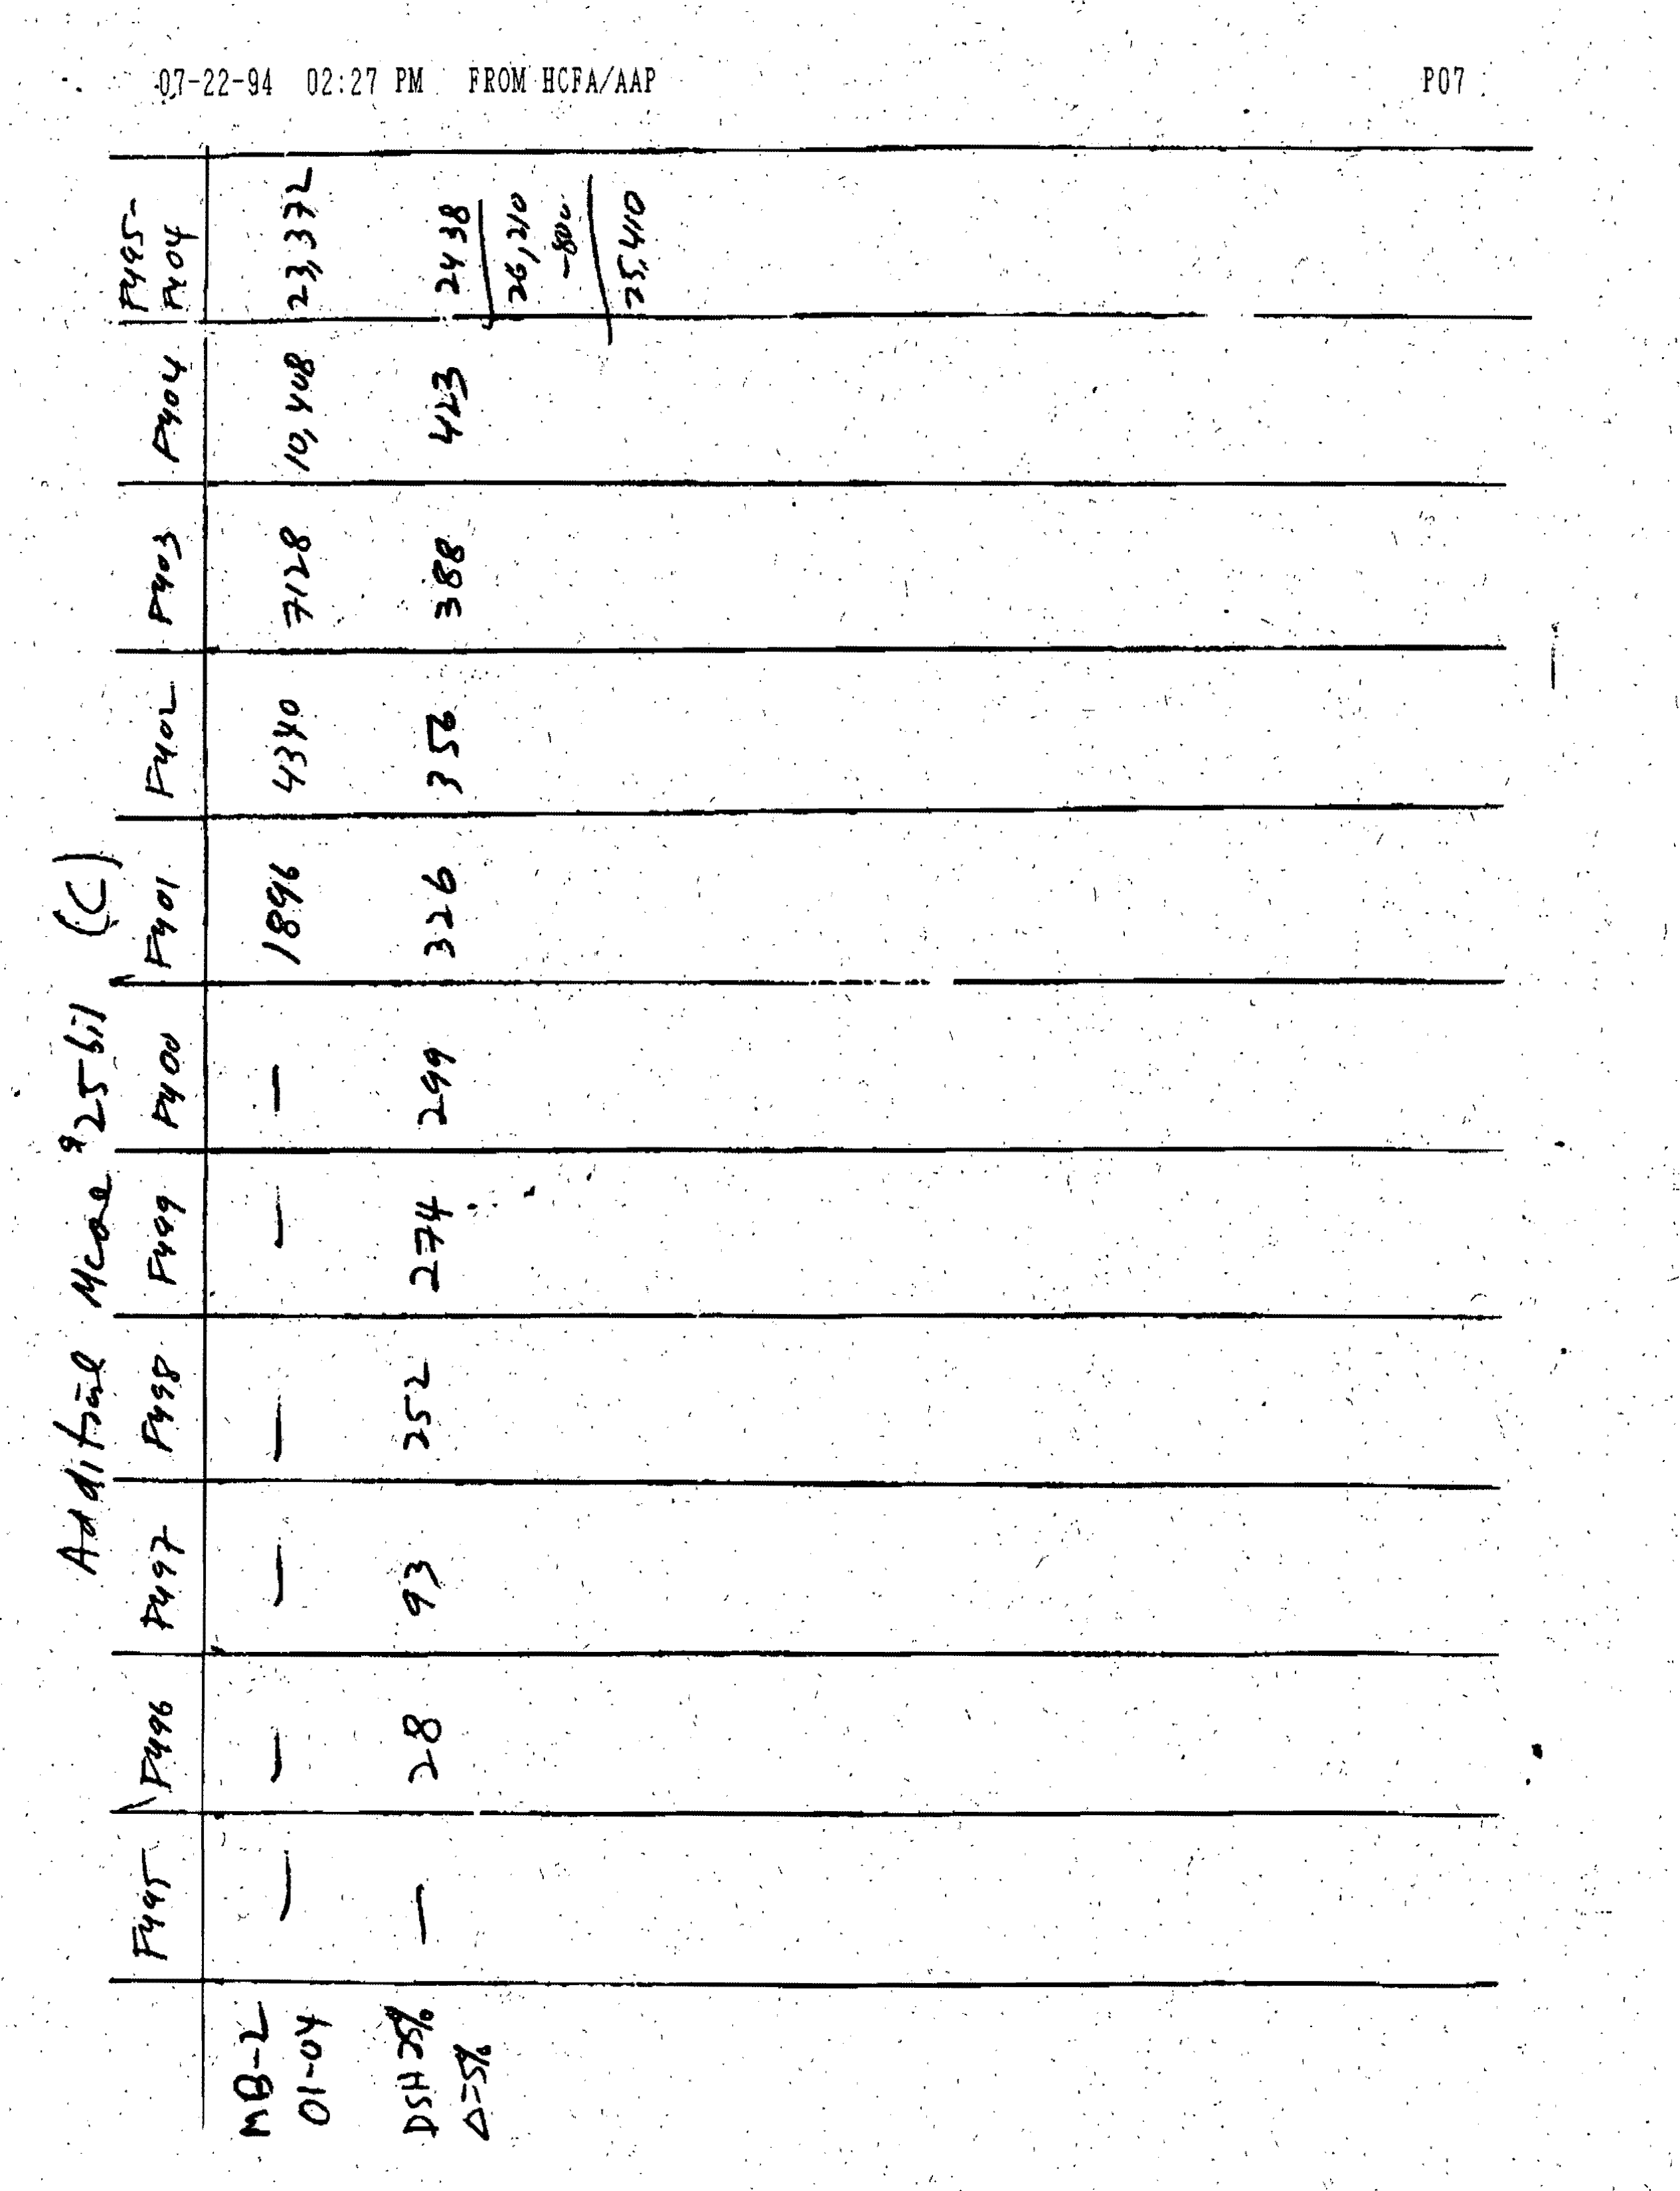 07-22-94 02:27 PM FROM HCFA/AAP P07
Additional Mcare $25 bil (C)
FY95 FY96 FY97 FY98 FY99 FY00 FY01 FY02 FY03 FY04 FY95-
FY04
MB-2 — — — — — — 1896 4340 7128 10,408 23,372
01-04
DSH 25% — 28 93 252 274 299 326 356 388 423 2438
Δ=5% 26,210
-800
25,410